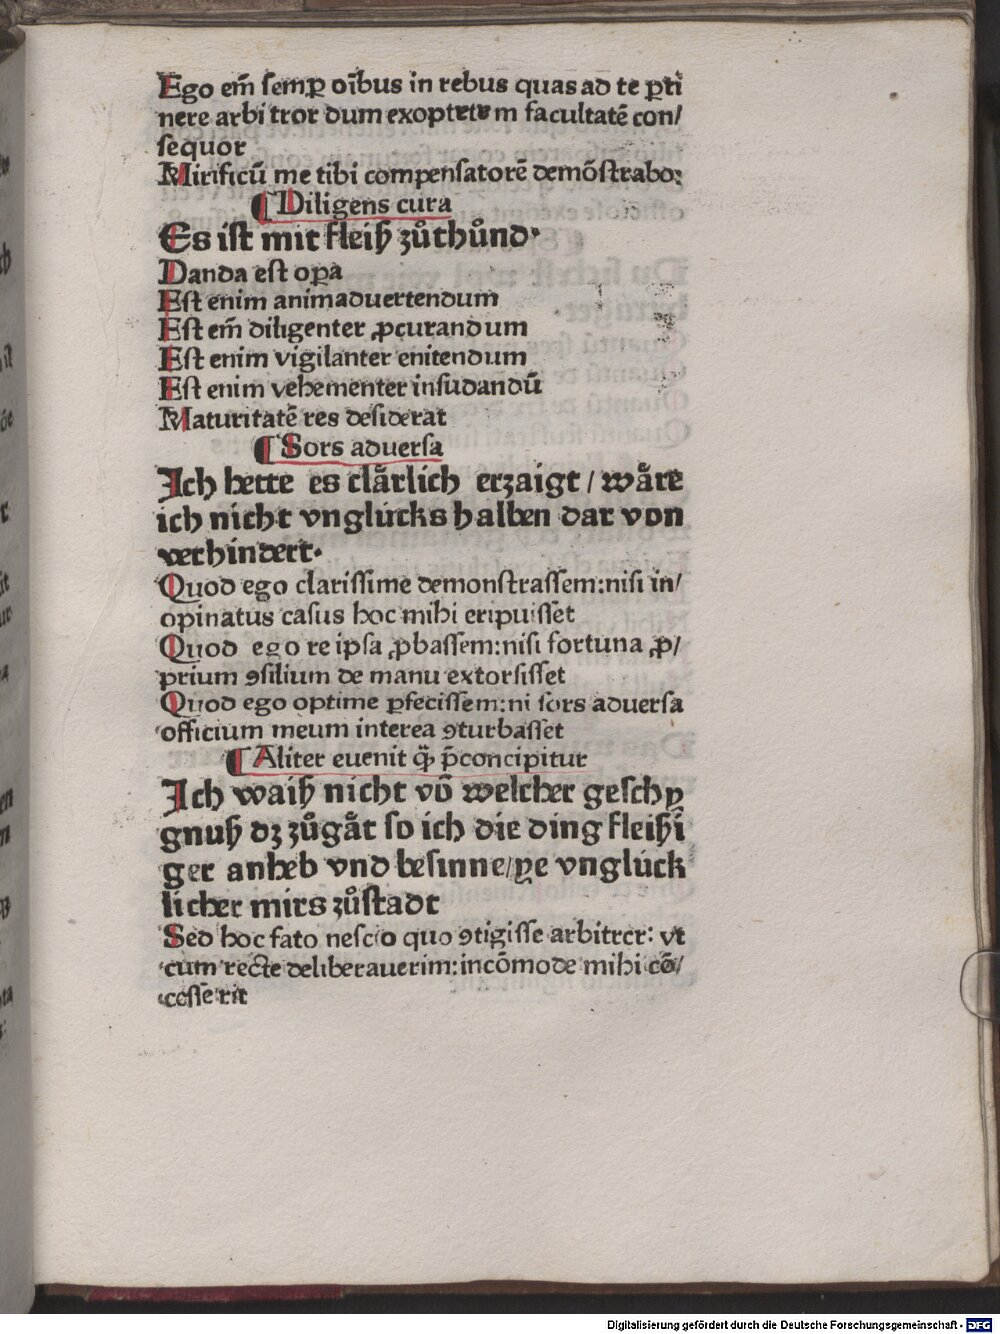 Ego em̄ semꝑ oībus in rebus quas ad te ꝑti
nere arbitror dum exoptetvm facultatē con/
sequor
Mirificū me tibi compensatorē demōstrabo:
¶ Diligens cura
Es ist mit fleiß zůthůnd·
Danda est oꝑa
Est enim animaduertendum
Est em̄ diligenter ꝓcurandum
Est enim vigilanter enitendum
Est enim vehementer insudandū
Maturitatē res desiderat
¶ Sors aduersa
Ich hette es clårlich erzaigt / wåre
ich nicht vnglücks halben dar von
verhindert·
Quod ego clarissime demonstrassem:nisi in/
opinatus casus hoc mihi eripuisset
Quod ego re ipsa ꝓbassem:nisi fortuna ꝓ/
prium ꝯsilium de manu extorsisset
Quod ego optime ꝑfecissem:ni sors aduersa
officium meum interea ꝯturbasset
¶ Aliter euenit q̄ꝫ p̄concipitur
Ich waiß nicht vō welcher geschy
gnuß dz zůgåt so ich die ding fleißi
ger anheb vnd besinne/ye vnglück
licher mirs zůstadt
Sed hoc fato nescio quo ꝯtigisse arbitrer: vt
cum recte deliberauerim:incōmode mihi cō/
cesserit
Digitalisierung gefördert durch die Deutsche Forschungsgemeinschaft - DFG